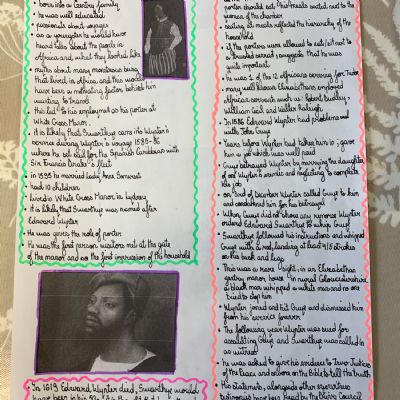 born into a Gentry family
• he was well educated
• passionate about voyages
• as a youngster he would have
heard tales about the people in
Africa and what they looked like
• myths about many monstrous beings
that lived in Africa and this would
have been a motivating factor behind him
wanting to travel
• this led to his employment as his porter at
White Cross Manor.
• it is likely that Swarthye came into Wynter's
service during Wynter's voyage 1585-86
where he set sail for the Spanish Caribbean with
Sir Francis Drake's fleet
• in 1595 he married Lady Anne Somerset
• had 10 children
• lived in White Cross Manor in Lydney
• it is likely that Swarthye was named after
Edward Wynter
• He was given the role of porter
• He was the first person visitors met at the gate
of the manor and the first impression of the household
• In 1619 Edward Wynter died, Swarthye would
have been in his
porter should eat his meals next to the
women of the chamber
• seating at meals reflected the hierarchy of the
household
• if the porters were allowed to eat next to
a trusted servant, suggests that he was
quite important
• he was 1 of the 12 Africans serving for Tudor
• many well known Elizabethans employed
African servants such as: Robert Dudley,
William Cecil and Walter Raleigh.
• In 1596 Edward Wynter had problems
with John Guye
• Years before Wynter had taken him in & gave
him a job which was well paid
• Guye betrayed Wynter by marrying the daughter
of one Wynter's enemies and neglecting to complete
his job
• on 3rd of December Wynter called Guye to him
and condemned him for his betrayal
• When Guye did not show any remorse Wynter
ordered Edward Swarthye to whip Guye
• Swarthye followed his instructions and whipped
Guye with a rod, landing at least 4/5 strokes
on his back and legs
• This was a rare sight, in an Elizabethan
gentry manor house in rural Gloucestershire,
a black man whipped a white man and no one
tried to stop him
• Wynter joined and hit Guye and dismissed him
from his service forever
• The following year Wynter was sued for
assaulting Guye and Swarthye was called in
as witness
• he was asked to give his evidence to two Justices
of the Peace and sworn on the Bible to tell the truth
• His statements, alongside other
testimony have been